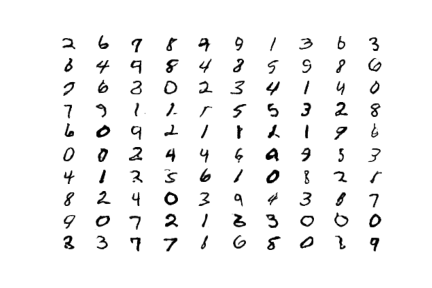 2 6 7 8 9 9 1 3 6 3
8 4 9 8 4 8 5 9 8 6
7 6 8 0 2 3 4 1 4 0
7 9 1 1 5 5 3 2 8
6 0 9 2 1 1 1 9 6
0 0 2 4 4 6 9 5 3
4 1 2 5 6 1 0 8 2
8 2 4 0 3 9 4 3 8 7
9 0 7 2 1 3 3 0 0 0
8 3 7 7 1 6 8 0 9